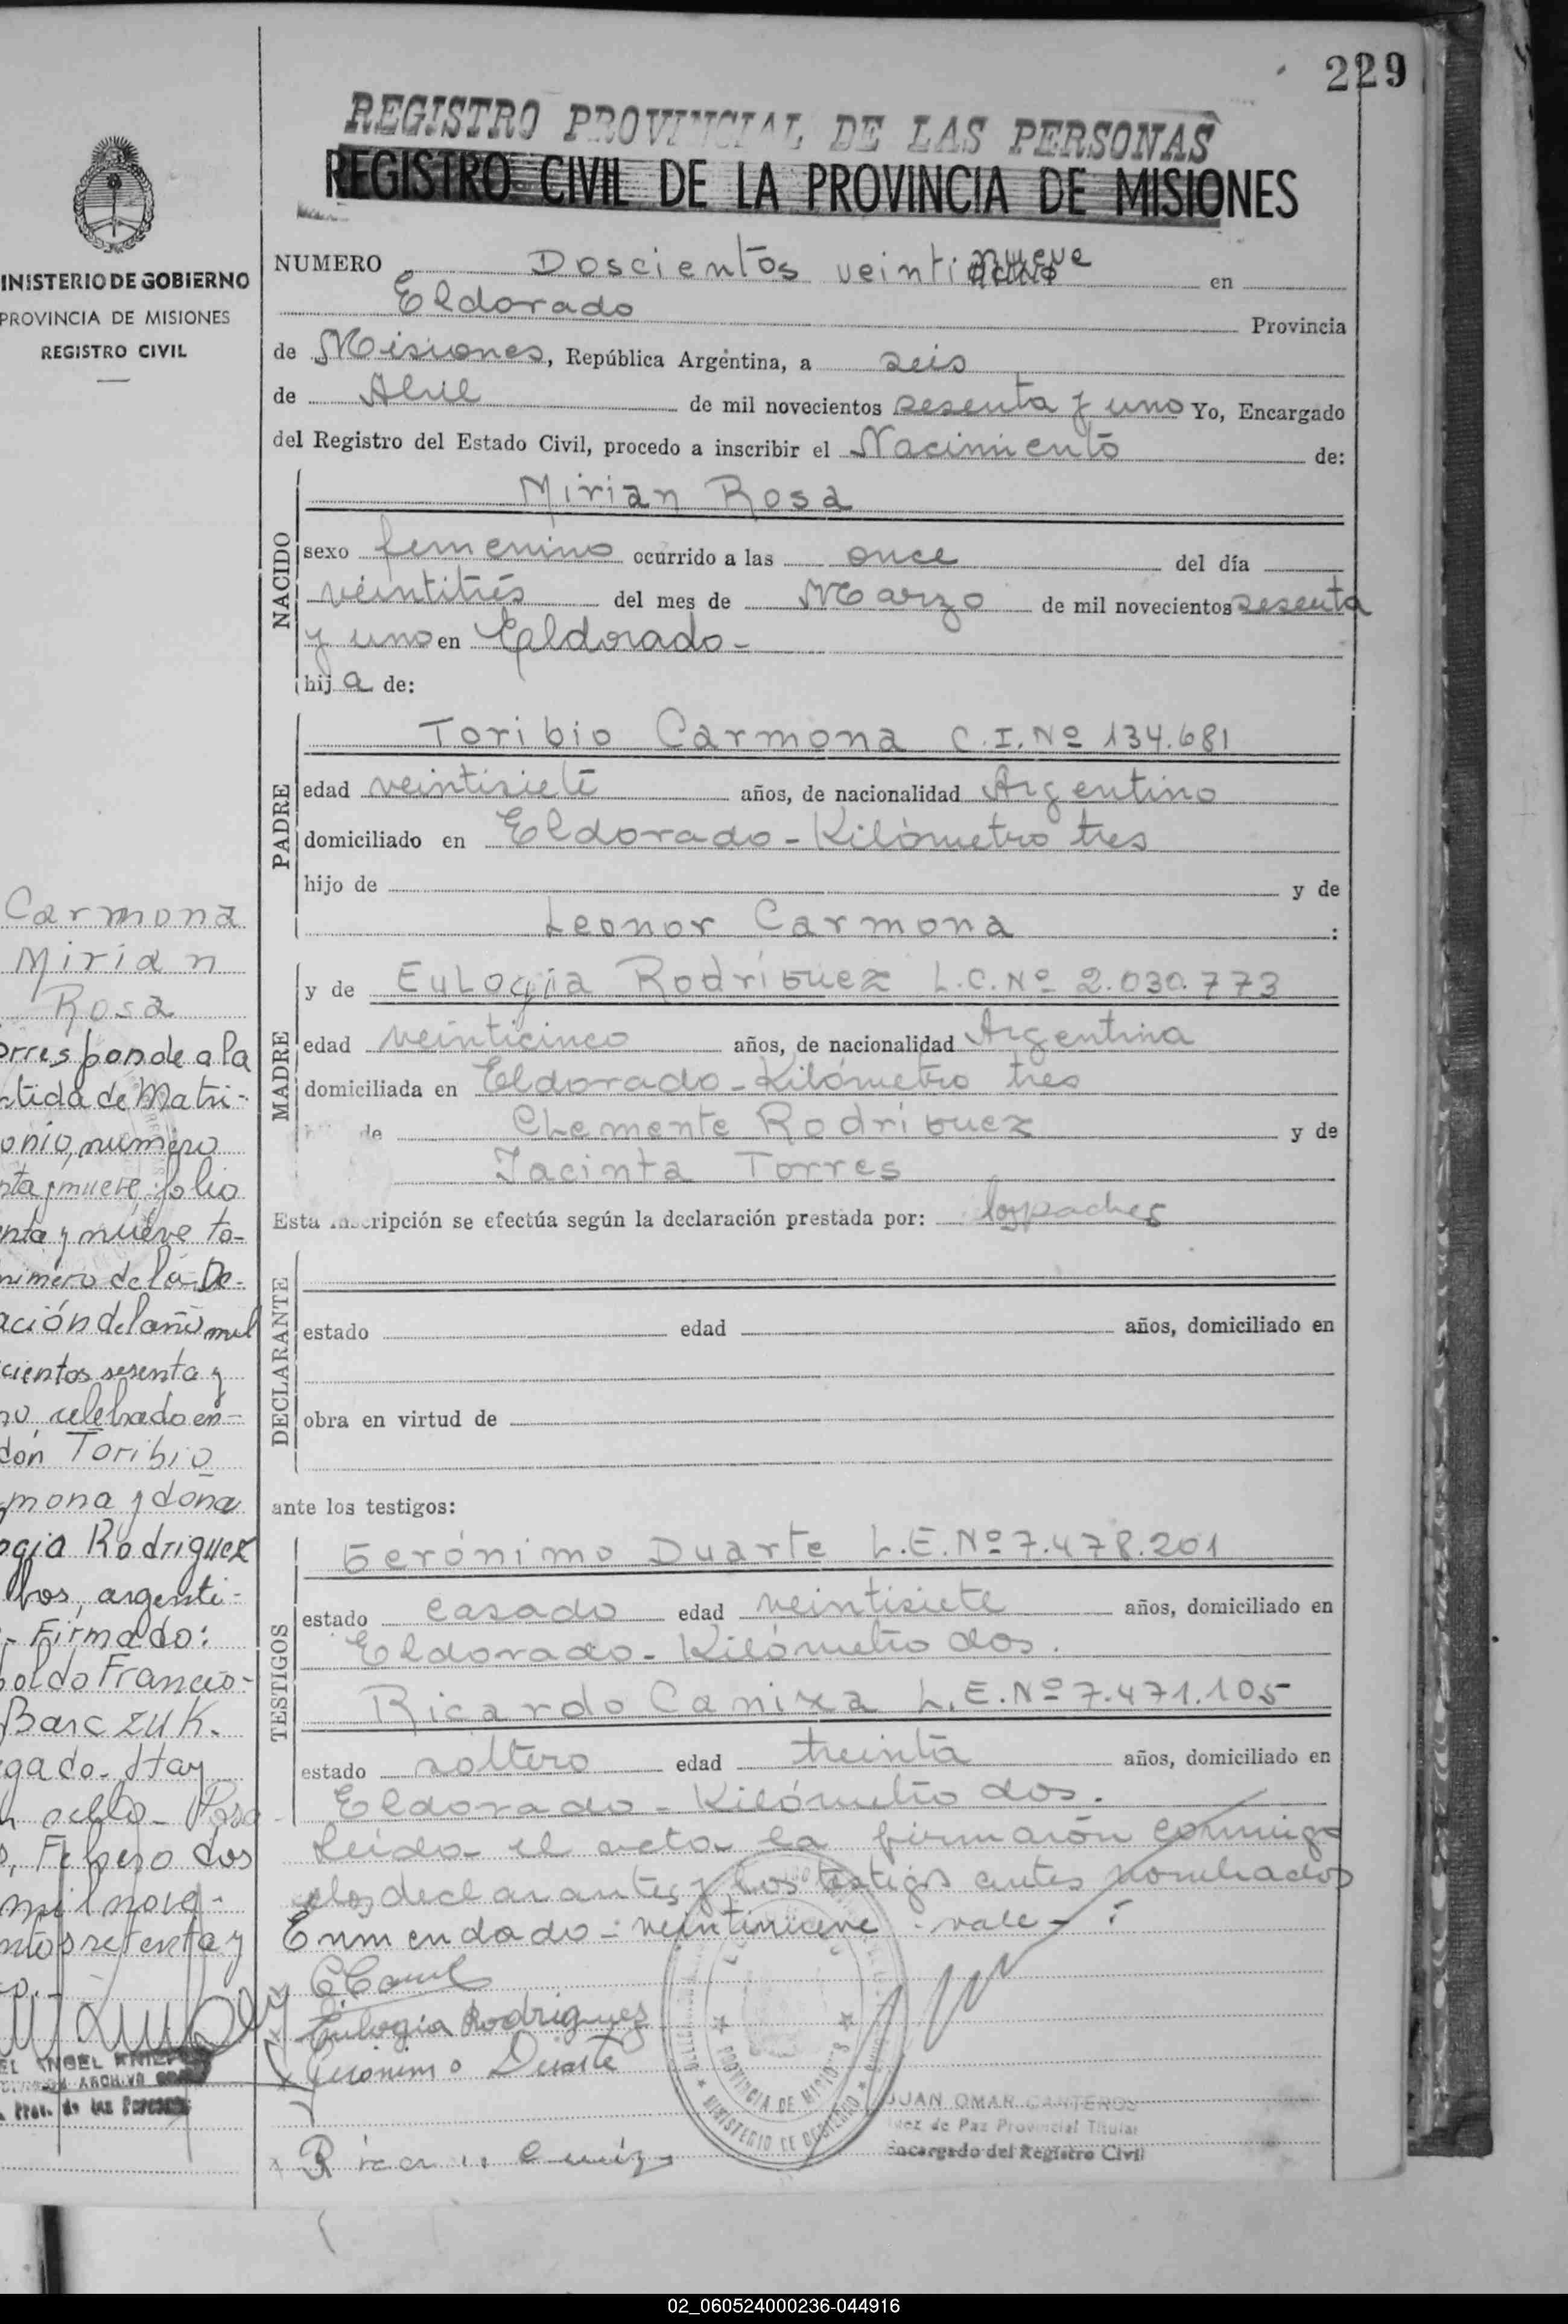 229
REGISTRO PROVINCIAL DE LAS PERSONAS
REGISTRO CIVIL DE LA PROVINCIA DE MISIONES
INISTERIO DE GOBIERNO
PROVINCIA DE MISIONES
REGISTRO CIVIL
NUMERO Doscientos veintinueve en
Eldorado Provincia
de Misiones, República Argentina, a seis
de Abril de mil novecientos sesenta y uno Yo, Encargado
del Registro del Estado Civil, procedo a inscribir el Nacimiento de:
NACIDO
Mirian Rosa
sexo femenino ocurrido a las once del día
veintitrés del mes de Marzo de mil novecientos sesenta
y uno en Eldorado-
hij a de:
PADRE
Toribio Carmona C.I.Nº 134.681
edad veintisiete años, de nacionalidad Argentino
domiciliado en Eldorado - Kilómetro tres
hijo de y de
Leonor Carmona :
MADRE
y de Eulogia Rodríguez L.C.Nº 2.030.773
edad veinticinco años, de nacionalidad Argentina
domiciliada en Eldorado - Kilómetro tres
de Clemente Rodríguez y de
Jacinta Torres
Esta inscripción se efectúa según la declaración prestada por: los padres
DECLARANTE
estado edad años, domiciliado en
obra en virtud de
ante los testigos:
TESTIGOS
Gerónimo Duarte L.E.Nº 7.478.201
estado casado edad veintisiete años, domiciliado en
Eldorado - Kilómetro dos.
Ricardo Caniza L.E.Nº 7.471.105
estado soltero edad treinta años, domiciliado en
Eldorado - Kilómetro dos.
Leída el acta la firmarón conmigo
los declarantes y los testigos antes nombrados
Enmendado - veintinueve - vale -
Eulogia Rodrigues
Gerónimo Duarte
PROVINCIA DE MISIONES
MINISTERIO DE GOBIERNO
JUAN OMAR CANTEROS
Juez de Paz Provincial Titular
Encargado del Registro Civil
Carmona
Mirian
Rosa
orresponde a la
rtida de Matri-
onio, numero
nta y nueve, folio
enta y nueve to-
rimero de la De-
ación del año mil
cientos sesenta y
no, celebrado en-
don Toribio
mona y doña
ogia Rodriguez
bos, argenti-
- Firmado:
oldo Francis-
Barczuk.
gado. Hay
n sello - Posa
s, Febrero dos
mil nove-
ntos setenta y
02_060524000236-044916